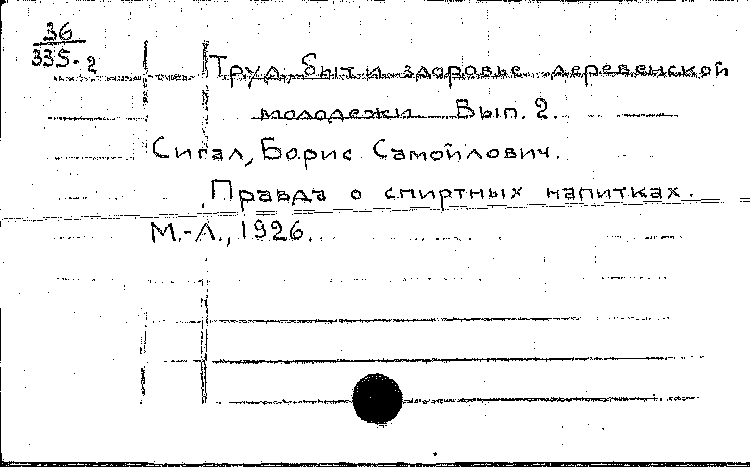 36
335-2
Труд, быт и здоровье деревенской
молодежи Вып. 2.
Сигал, Борис Самойлович.
Правда о спиртных напитках.
М.-Л., 1926.